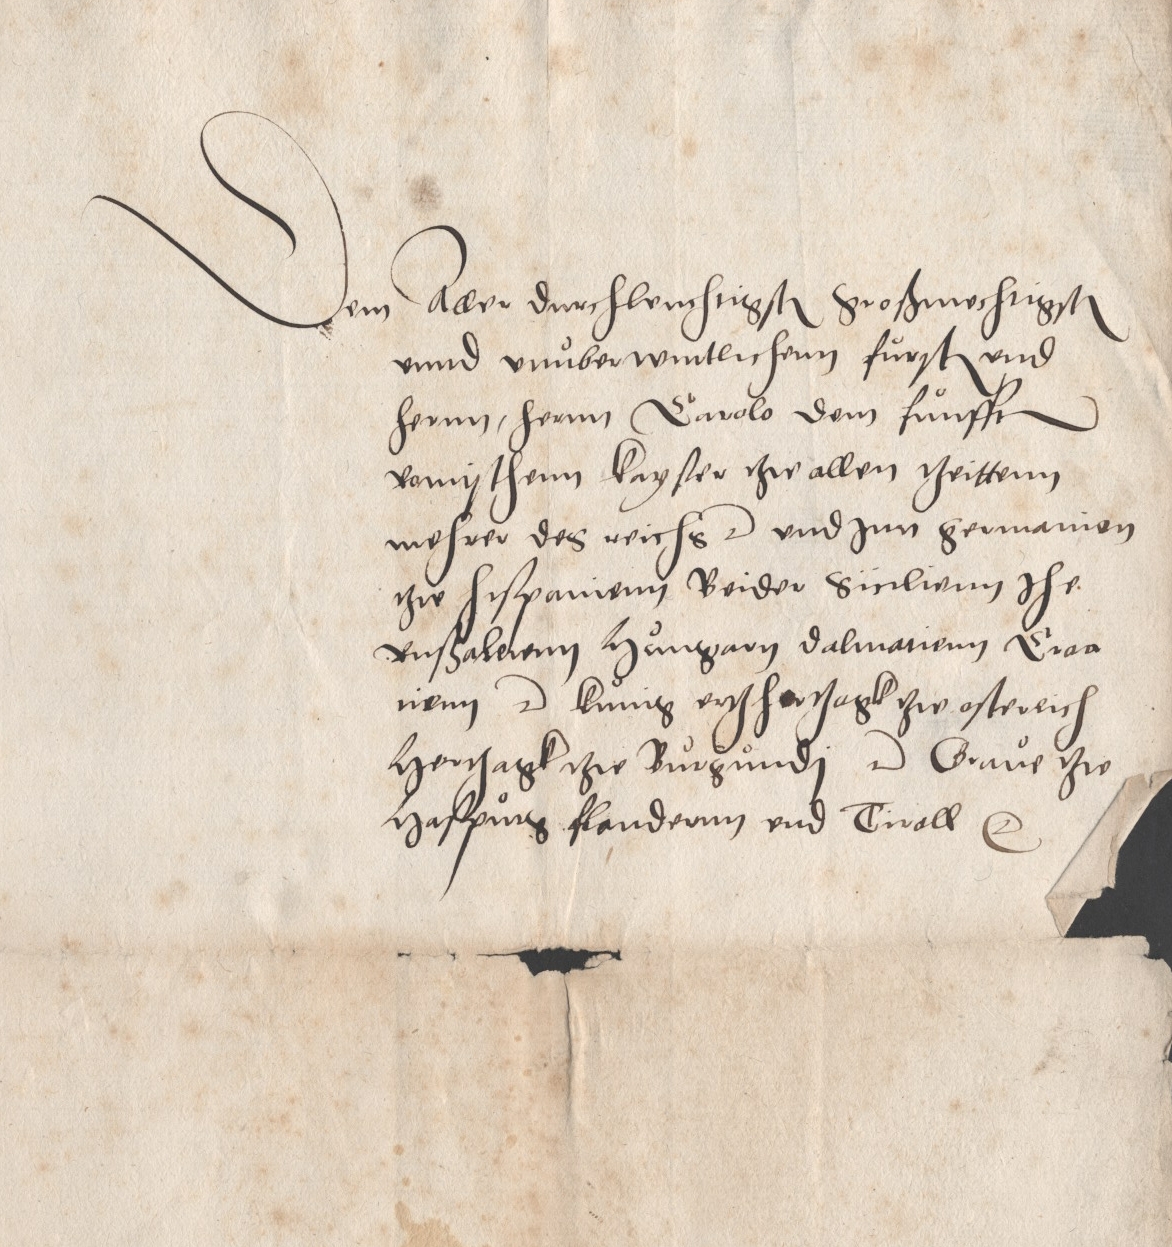 Dem Aller durchleuchtigst großmechtigst
vnnd vnuberwintlichenn fürst vnd
hernn, hernn Carolo dem fünfft
romischenn kayser tzw allen tzeittenn
mehrer des reichs ꝛ vnd Inn germanien
tzw hispanienn Beider Sicilienn Jhe
rußalemm Hungarn dalmatienn Croa
tienn ꝛ kunig ertzhertzogk tzw osterreich
Hertzogk tzw Burgundj ꝛ Graue tzw
Haspurg flandernn vnd Tiroll ꝛ